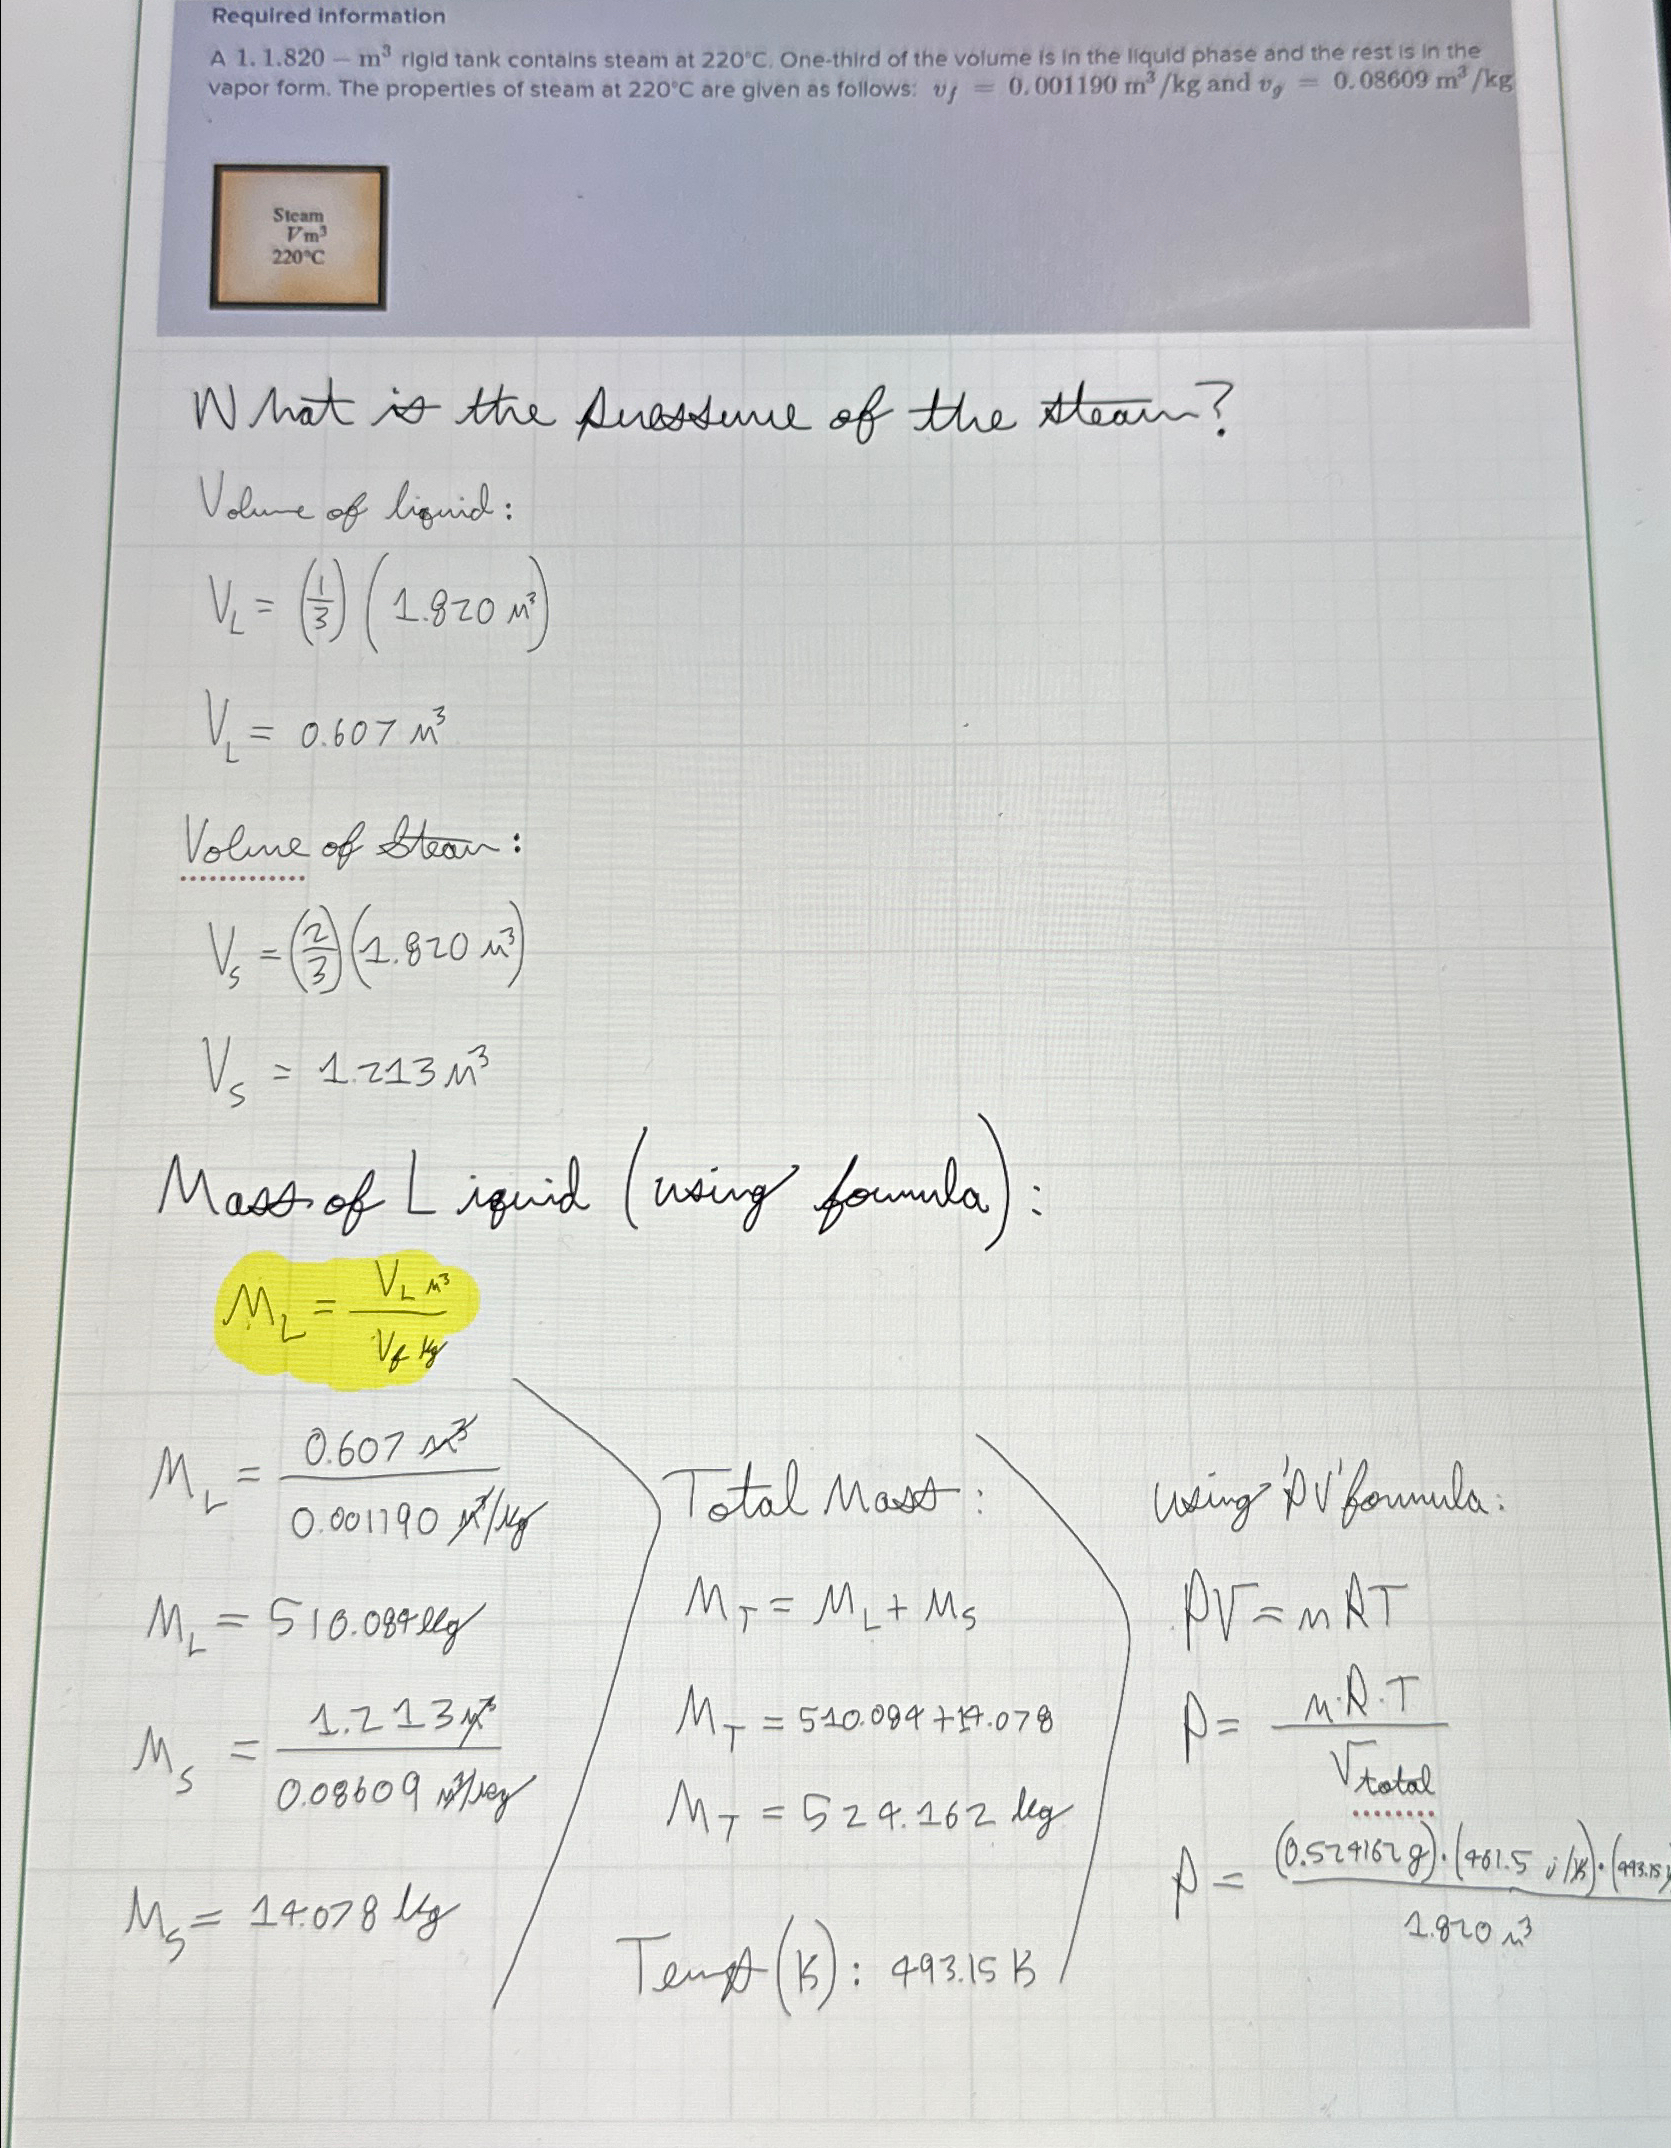 Required Information
A 1. 1.820 – m³ rigid tank contains steam at 220°C. One-third of the volume is in the liquid phase and the rest is in the
vapor form. The properties of steam at 220°C are given as follows: v_f = 0.001190 m³/kg and v_g = 0.08609 m³/kg
Steam
V m³
220°C
What is the pressure of the steam?
Volume of liquid:
V_L = (1/3) (1.820 m³)
V_L = 0.607 m³
Volume of Steam:
V_s = (2/3)(1.820 m³)
V_s = 1.213 m³
Mass of Liquid (using formula):
M_L = V_L m³ / V_f kg
M_L = 0.607 m³ / 0.001190 m³/kg
M_L = 510.084 kg
M_S = 1.213 m³ / 0.08609 m³/kg
M_S = 14.078 kg
Total Mass:
M_T = M_L + M_S
M_T = 510.084 + 14.078
M_T = 524.162 kg
Temp (K): 493.15 K
using 'PV' formula:
PV = mRT
P = m·R·T / V_total
P = (0.524162 g)·(461.5 j/K)·(493.15) / 1.820 m³